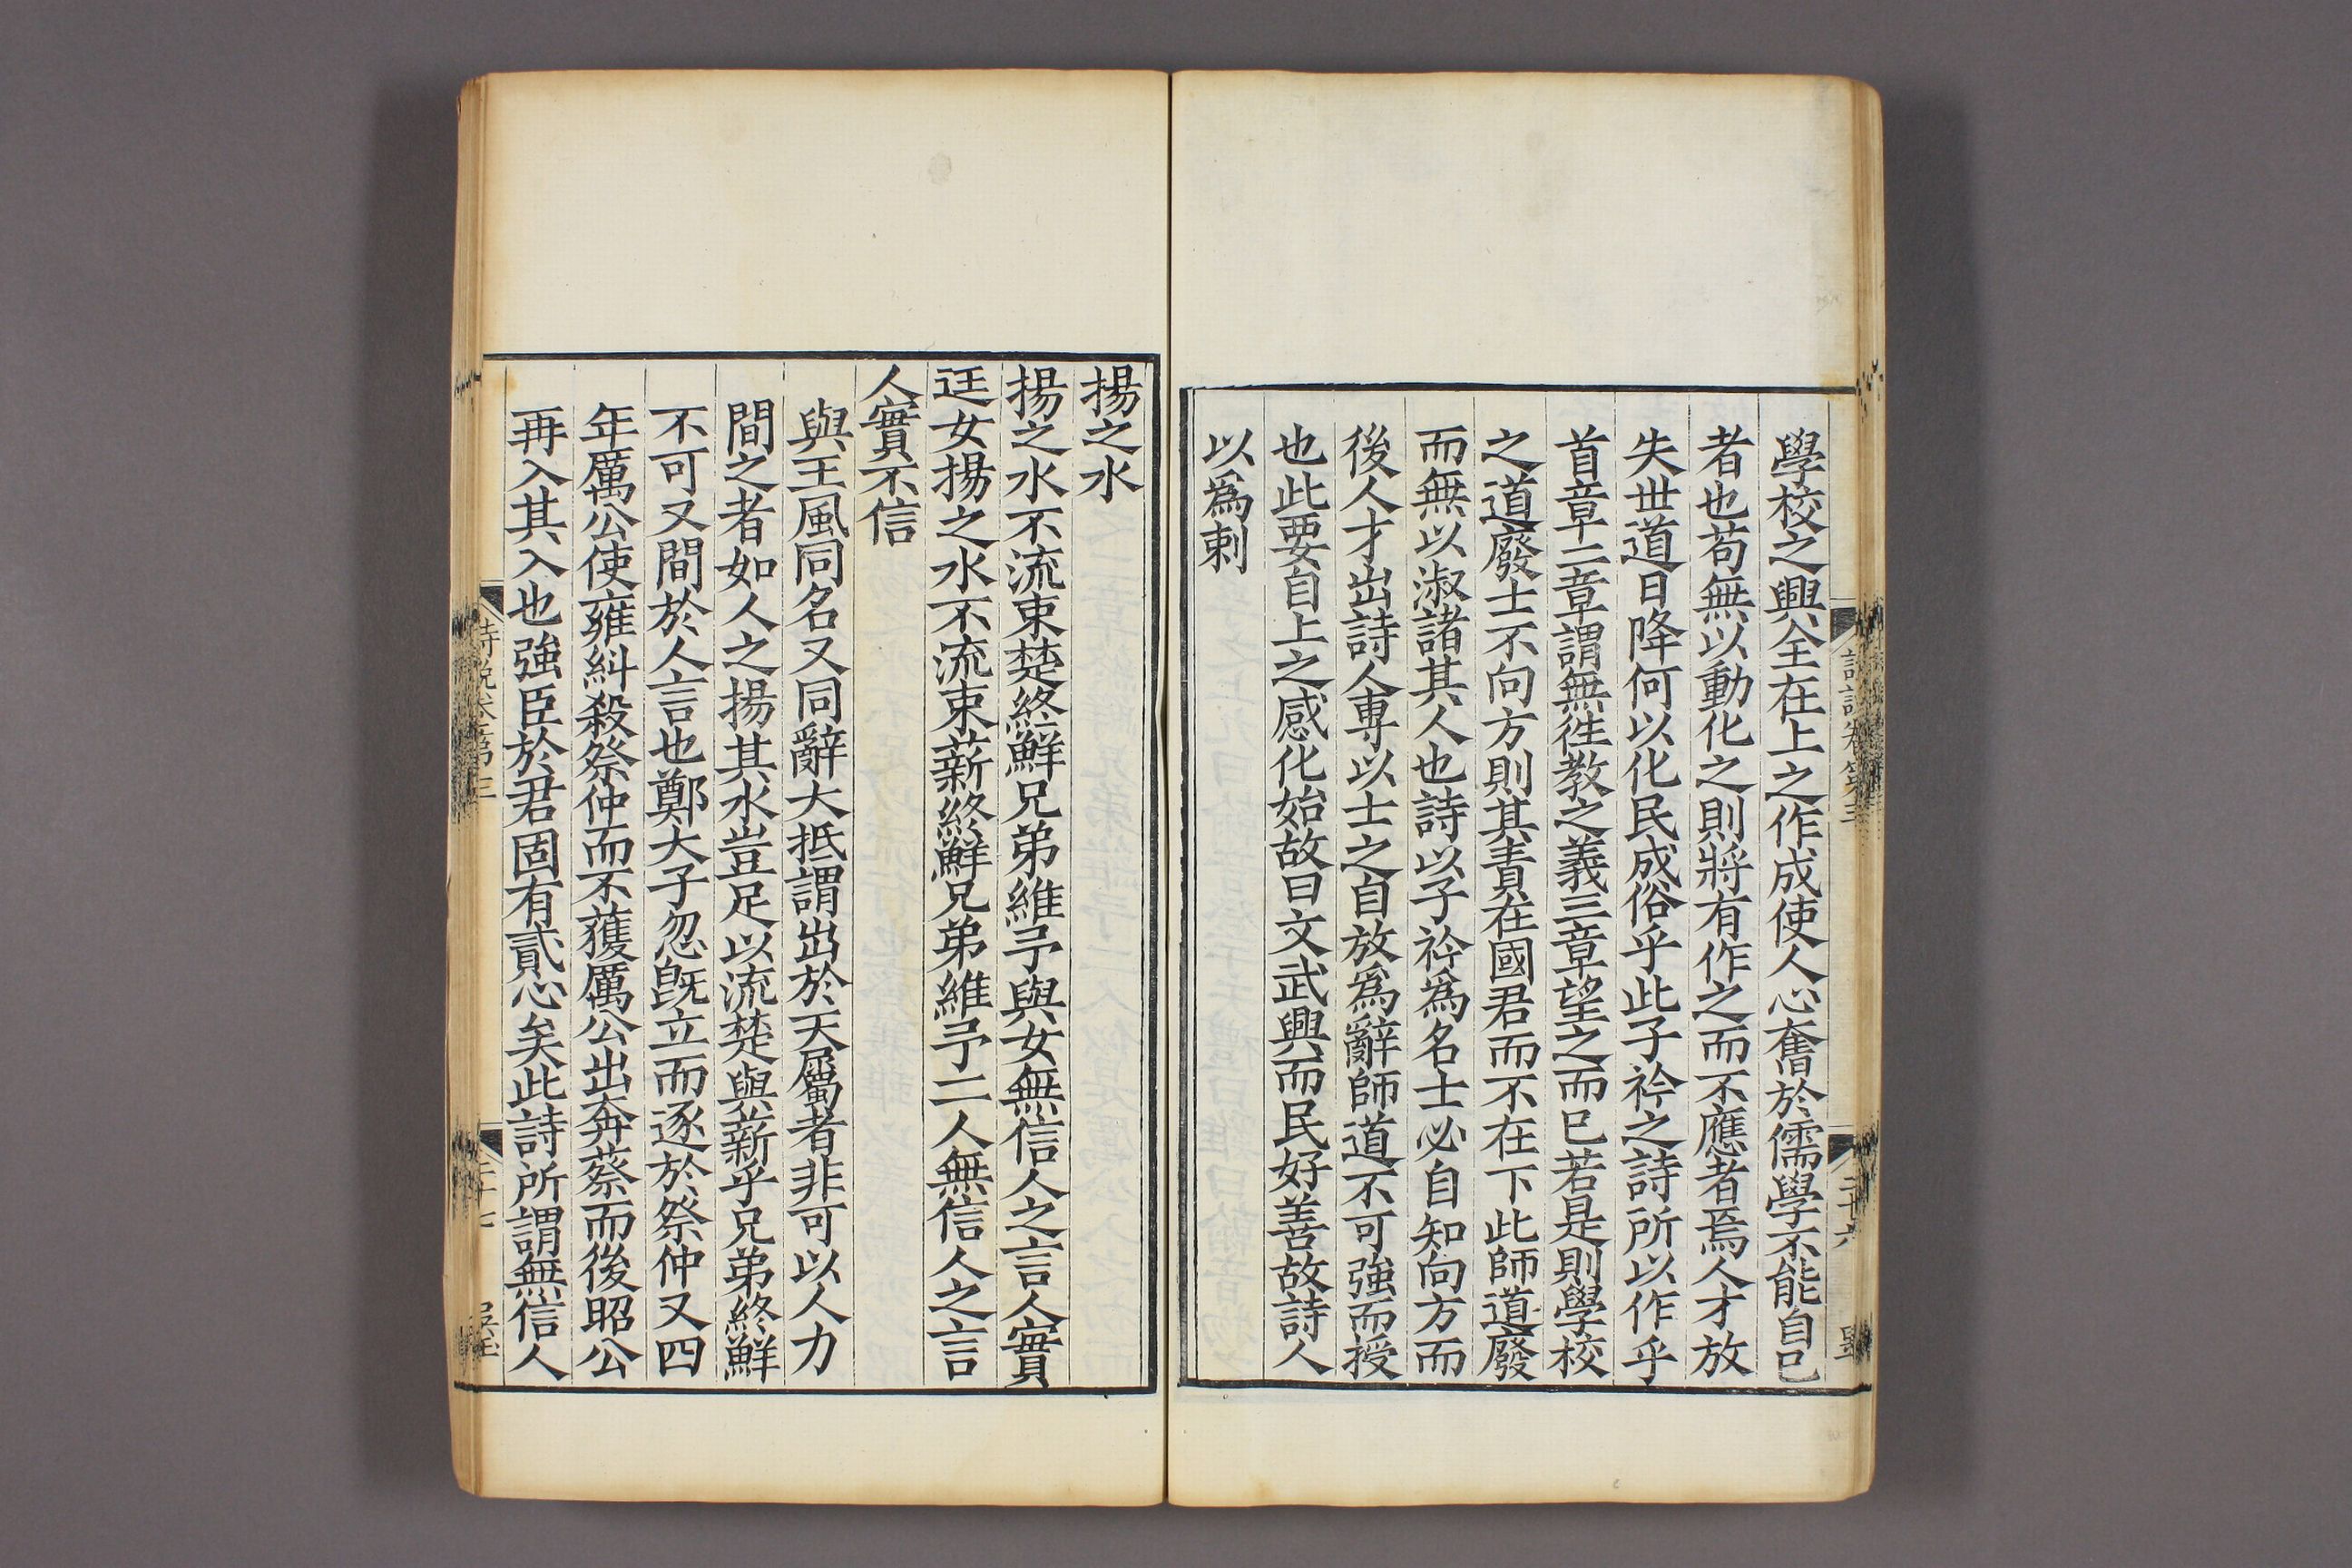 學校之興全在上之作成使人心奮於儒學不能自已
者也苟無以動化之則將有作之而不應者焉人才放
失世道日降何以化民成俗乎此子衿之詩所以作乎
首章二章謂無徃教之義三章望之而已若是則學校
之道廢士不向方則其責在國君而不在下此師道廢
而無以淑諸其人也詩以子衿爲名士必自知向方而
後人才出詩人專以士之自放爲辭師道不可強而授
也此要自上之感化始故曰文武興而民好善故詩人
以爲刺
揚之水
揚之水不流束楚終鮮兄弟維予與女無信人之言人實
迋女揚之水不流束薪終鮮兄弟維予二人無信人之言
人實不信
與王風同名又同辭大抵謂出於天屬者非可以人力
間之者如人之揚其水豈足以流楚與薪乎兄弟終鮮
不可又間於人言也鄭大子忽既立而逐於祭仲又四
年厲公使雍糾殺祭仲而不獲厲公出奔蔡而後昭公
再入其入也強臣於君固有貳心矣此詩所謂無信人
詩説卷第三
二十七